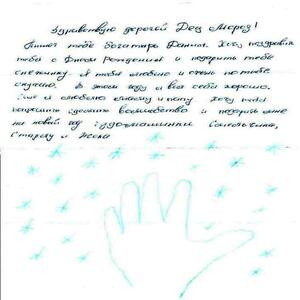 Здравствуй дорогой Дед Мороз!
Пишет тебе богатырь Данил. Хочу поздравить
тебя с Днем Рождения и подарить тебе
снежинку. Я тебя люблю и очень по тебе
скучаю. В этом году я вел себя хорошо.
Я люблю маму и папу. Хочу тебя
попросить сделать волшебство и подарить мне
на новый год чудо-машинки
и